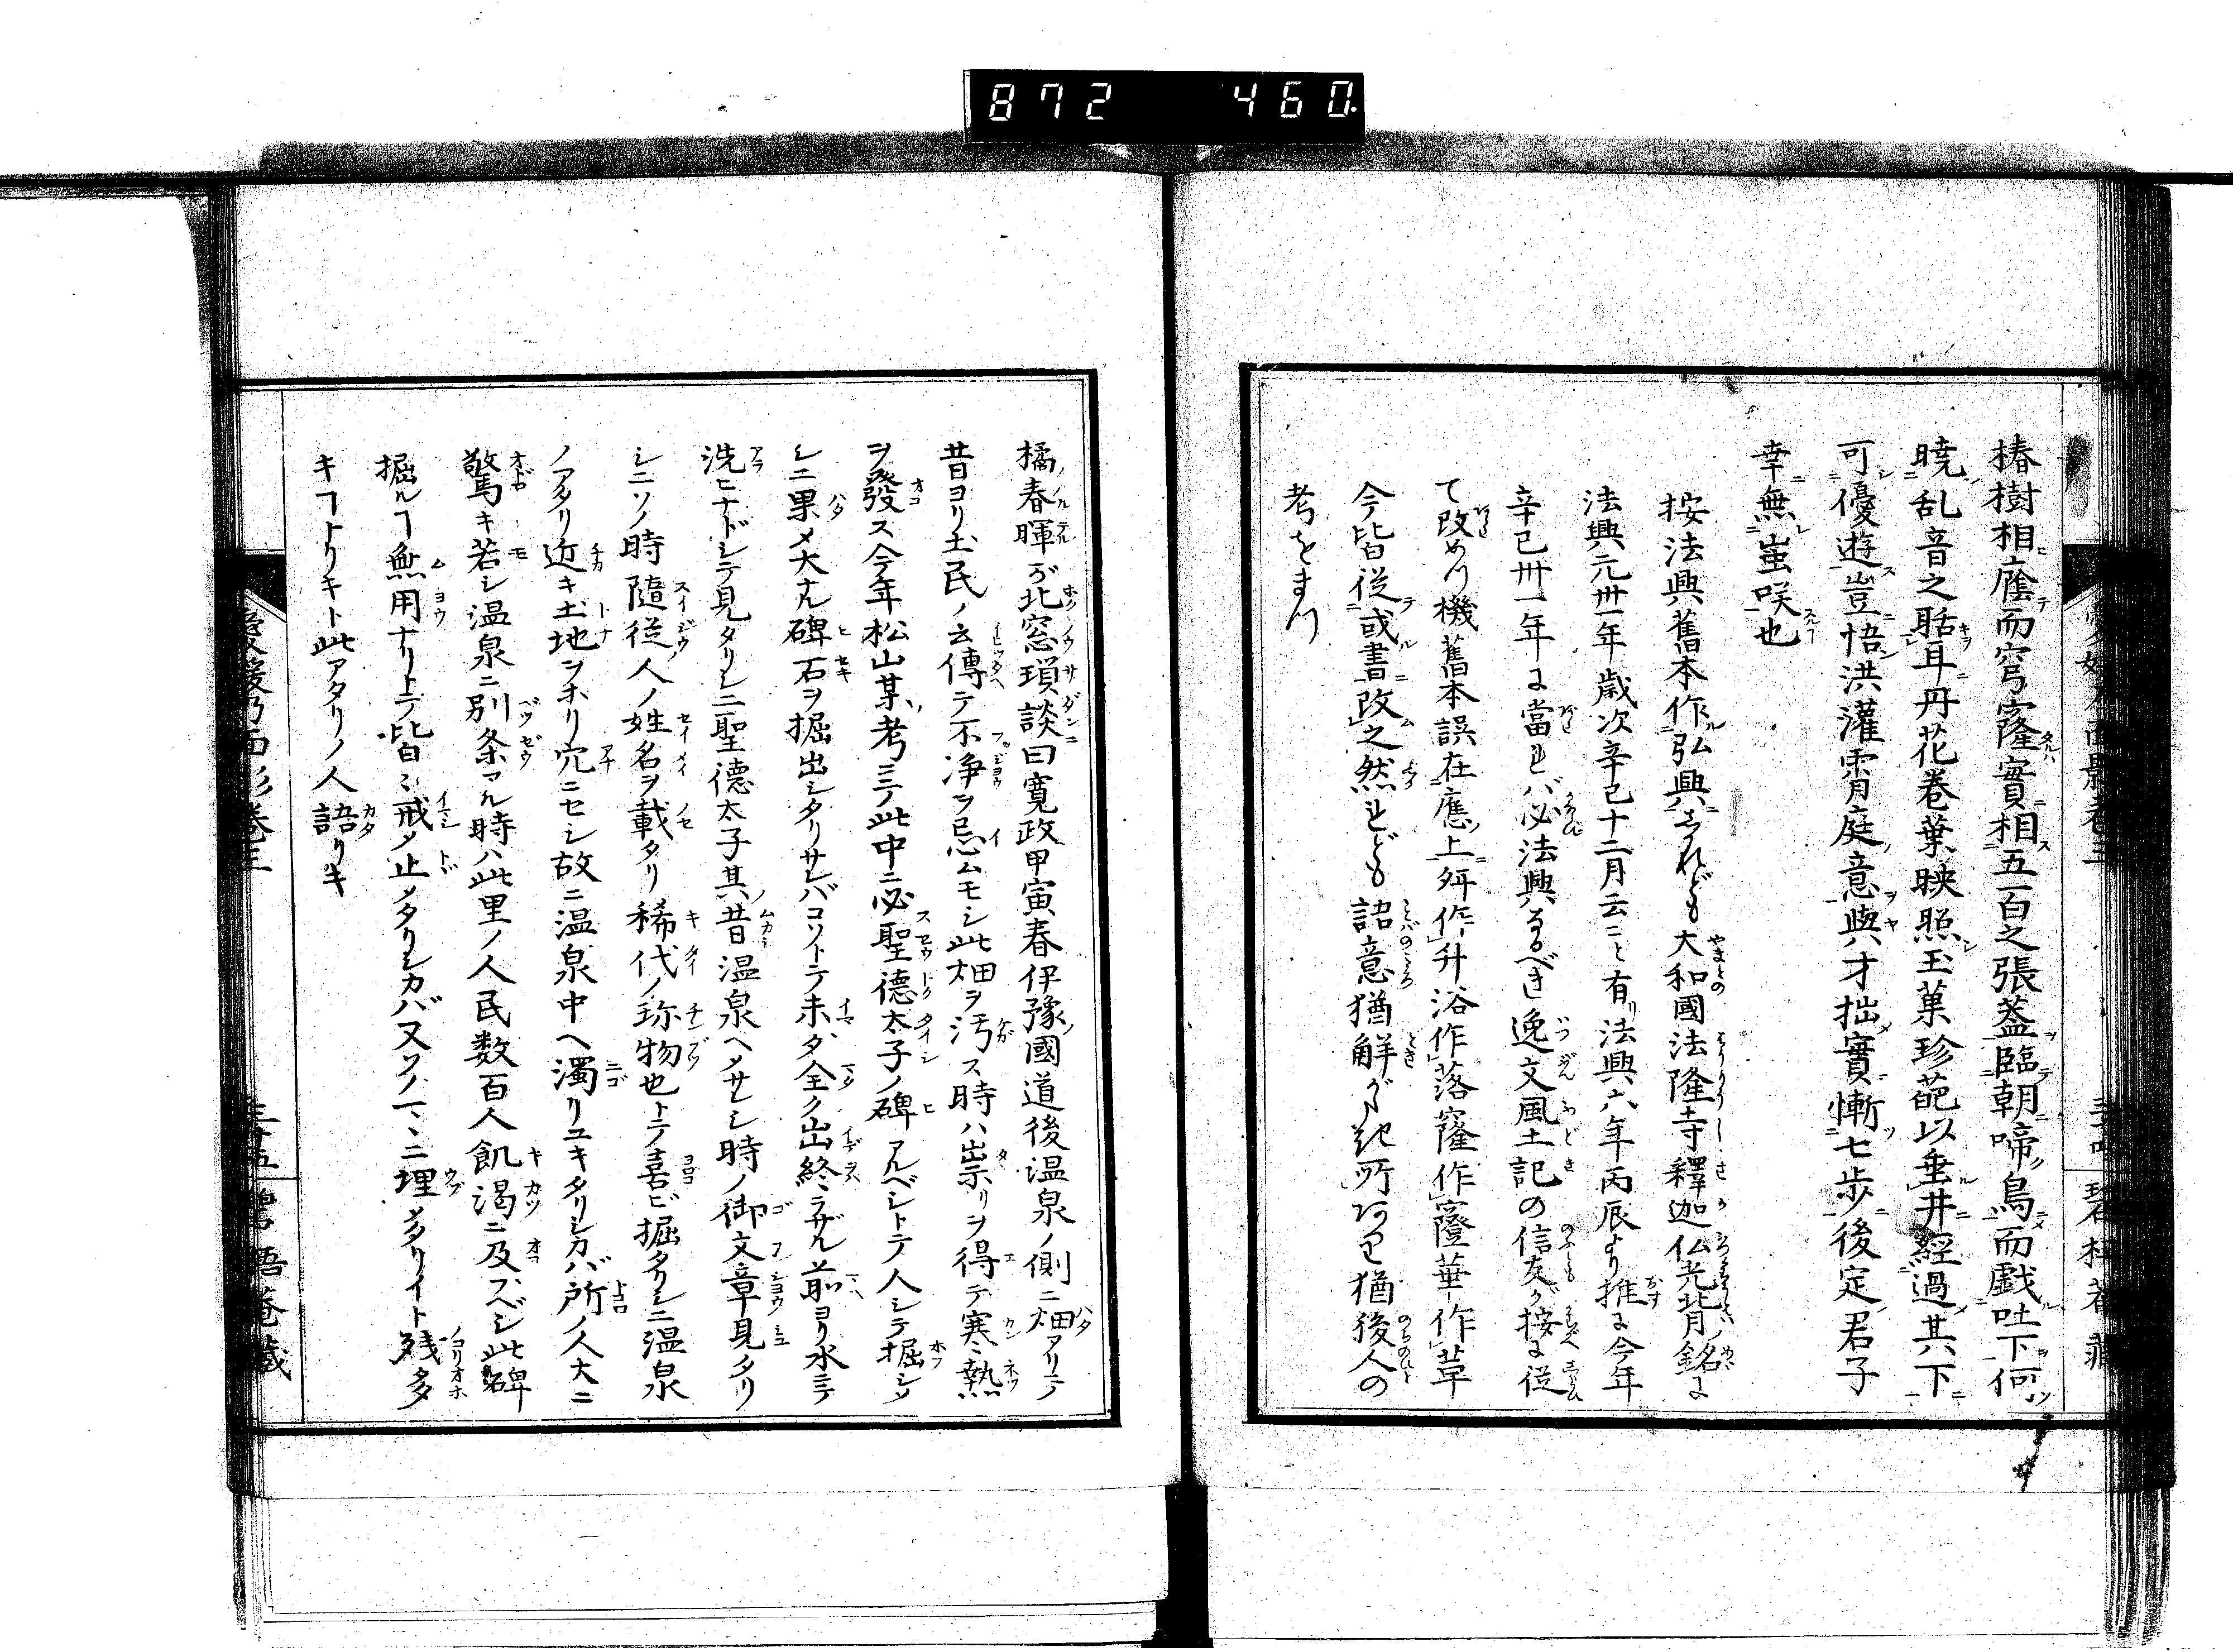 872 460
椿樹相廕而穹窿實相五百之張蓋臨朝啼鳥而戯吐下何
暁乱音之聒耳丹花巻葉映照玉菓珍葩以垂井經過其下
可優遊豈悟洪灌霄庭意與才拙實慚七歩後定君子
幸無蚩咲也
按法興舊本作弘興されども大和國法隆寺釋迦仏光背銘に
法興元卅一年歳次辛巳十二月云々と有法興六年丙辰より推に今年
辛巳卅一年に當れバ必法興なるべき逸文風土記の信友が按に従
て改めつ機舊本誤在應上歬作升浴作落窿作窿華作草
今皆従或書改之然れども語意猶解がたき所あり猶後人の
考をまつ
橘春暉ガ北窓瑣談曰寛政甲寅春伊豫國道後温泉ノ側ニ畑アリテ
昔ヨリ土民ノ云傳テ不浄ヲ忌ムモシ此畑ヲ汚ス時ハ出祟リヲ得テ寒熱
ヲ發ス今年松山某考ミテ此中ニ必聖徳太子ノ碑アルベシトテ人シテ掘シソ
シニ果メ大ナル碑石ヲ掘出シタリサレバコソトテ未ダ全ク出終ラザル前ヨリ水ニテ
洗ヒナドシテ見タリシニ聖徳太子其昔温泉ヘメサレシ時ノ御文章見タリ
シニソノ時隨従人ノ姓名ヲ載タリ稀代ノ珎物也トテ喜ビ掘タリシニ温泉
ノアタリ近キ土地ヲホリ穴ニセシ故ニ温泉中ヘ濁リユキタリシカバ所ノ人大ニ
驚キ若シ温泉ニ別条アル時ハ此里ノ人民数百人飢渇ニ及ブベシ此碑
掘ルヿ無用ナリトテ皆々戒メ止メタリシカバ又ソノマヽニ埋メタリイト残多
キヿトリキト此アタリノ人語リキ
愛媛乃面影巻三
三十五